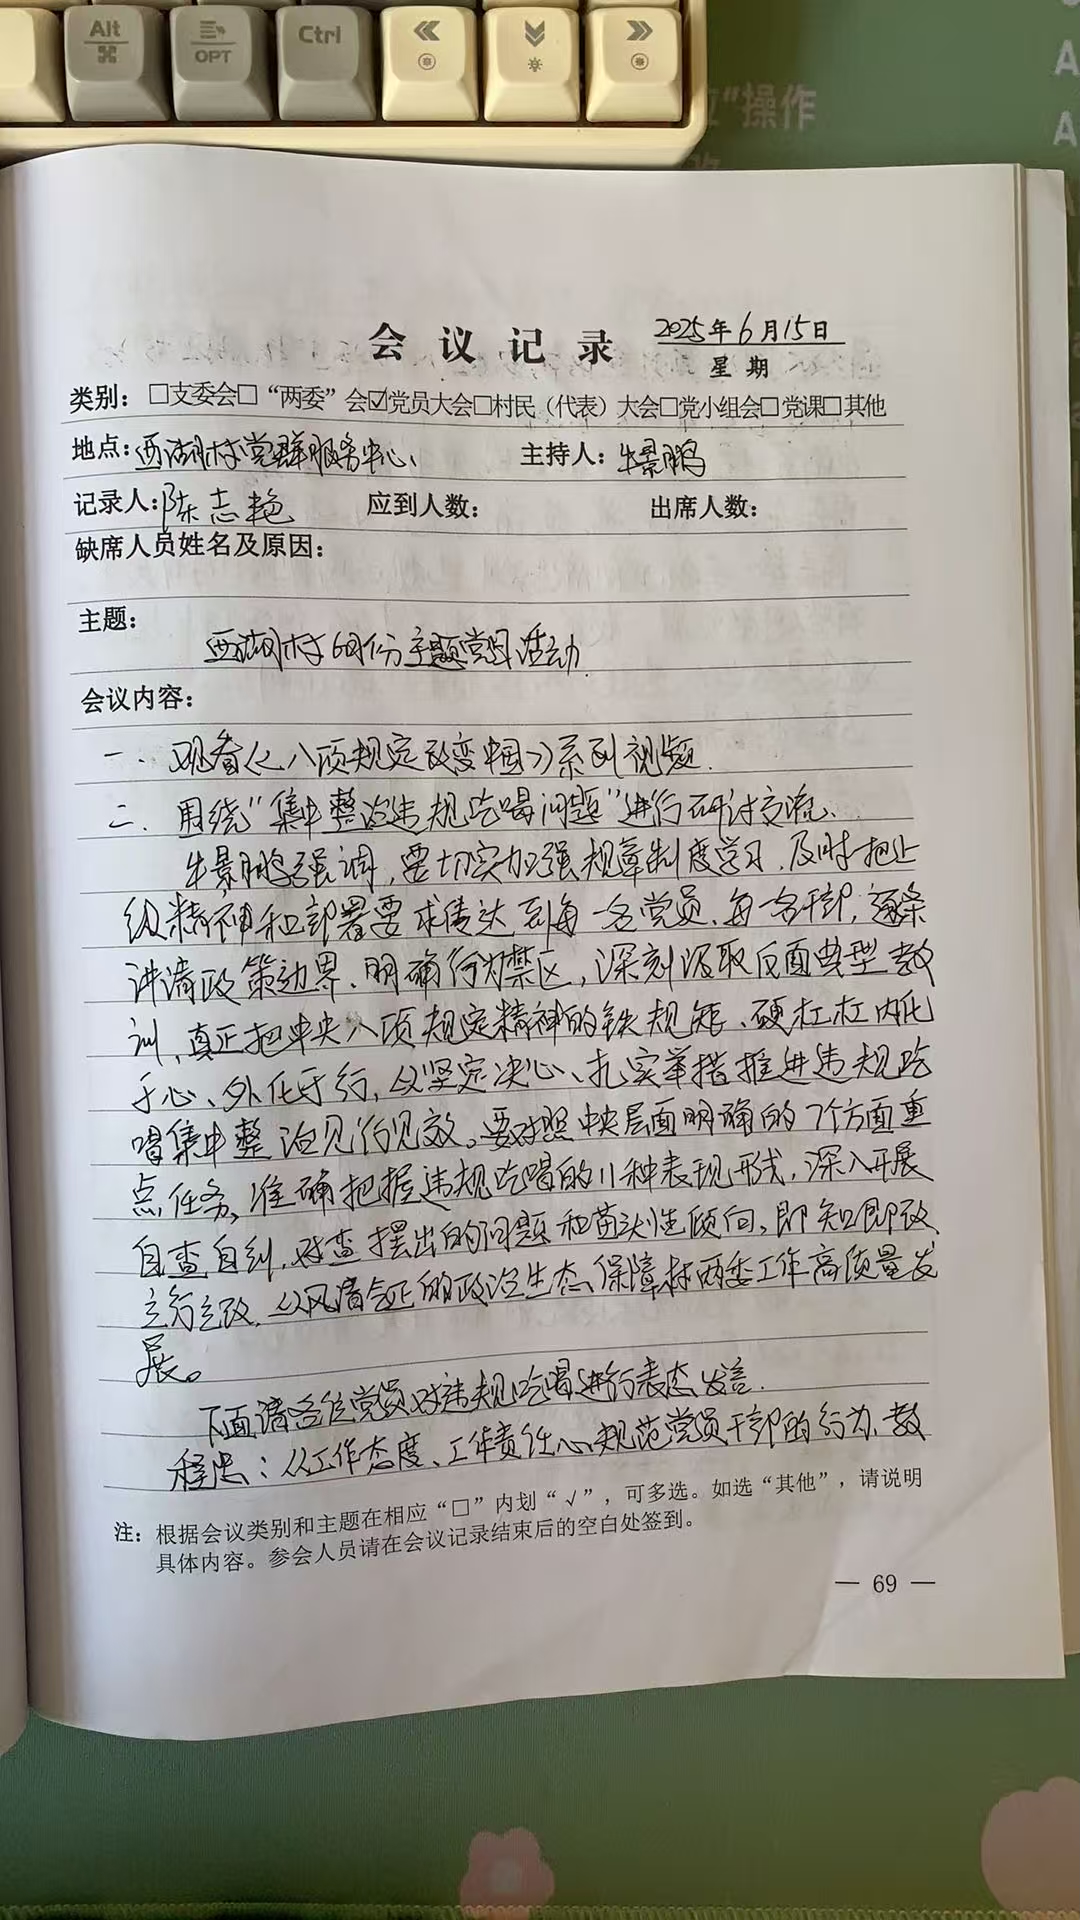 Alt
OPT
Ctrl
位"操作
A
A
会议记录
2025年6月15日
星期
类别：□支委会□“两委”会☑党员大会□村民（代表）大会□党小组会□党课□其他
地点：西湖村党群服务中心、 主持人：牛景鹏
记录人：陈志艳 应到人数： 出席人数：
缺席人员姓名及原因：
主题：
西湖村6月份主题党日活动.
会议内容：
一、观看《八项规定改变中国》系列视频.
二、围绕“集中整治违规吃喝问题”进行研讨交流、
牛景鹏强调，要切实加强规章制度学习，及时把上
级精神和部署要求传达到每一名党员、每一名干部，逐条
讲清政策边界、明确行为禁区，深刻汲取反面典型教
训，真正把中央八项规定精神的铁规矩、硬杠杠内化
于心、外化于行，以坚定决心、扎实举措推进违规吃
喝集中整治见行见效。要对照中央层面明确的7个方面重
点任务，准确把握违规吃喝的11种表现形式，深入开展
自查自纠，对查摆出的问题和苗头性倾向，即知即改、
立行立改，以风清气正的政治生态保障村两委工作高质量发
展。
下面请各位党员对违规吃喝进行表态发言.
程忠：从工作态度、工作责任心、规范党员干部的行为、教
注：根据会议类别和主题在相应“□”内划“√”，可多选。如选“其他”，请说明
具体内容。参会人员请在会议记录结束后的空白处签到。
— 69 —